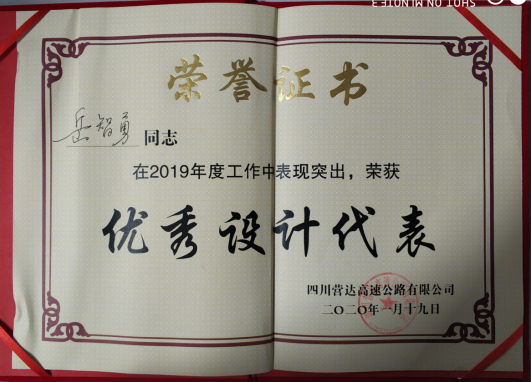 SHOT ON MI NOTE 3
荣誉证书
岳智勇 同志
在2019年度工作中表现突出，荣获
优秀设计代表
四川营达高速公路有限公司
二〇二〇年一月十九日